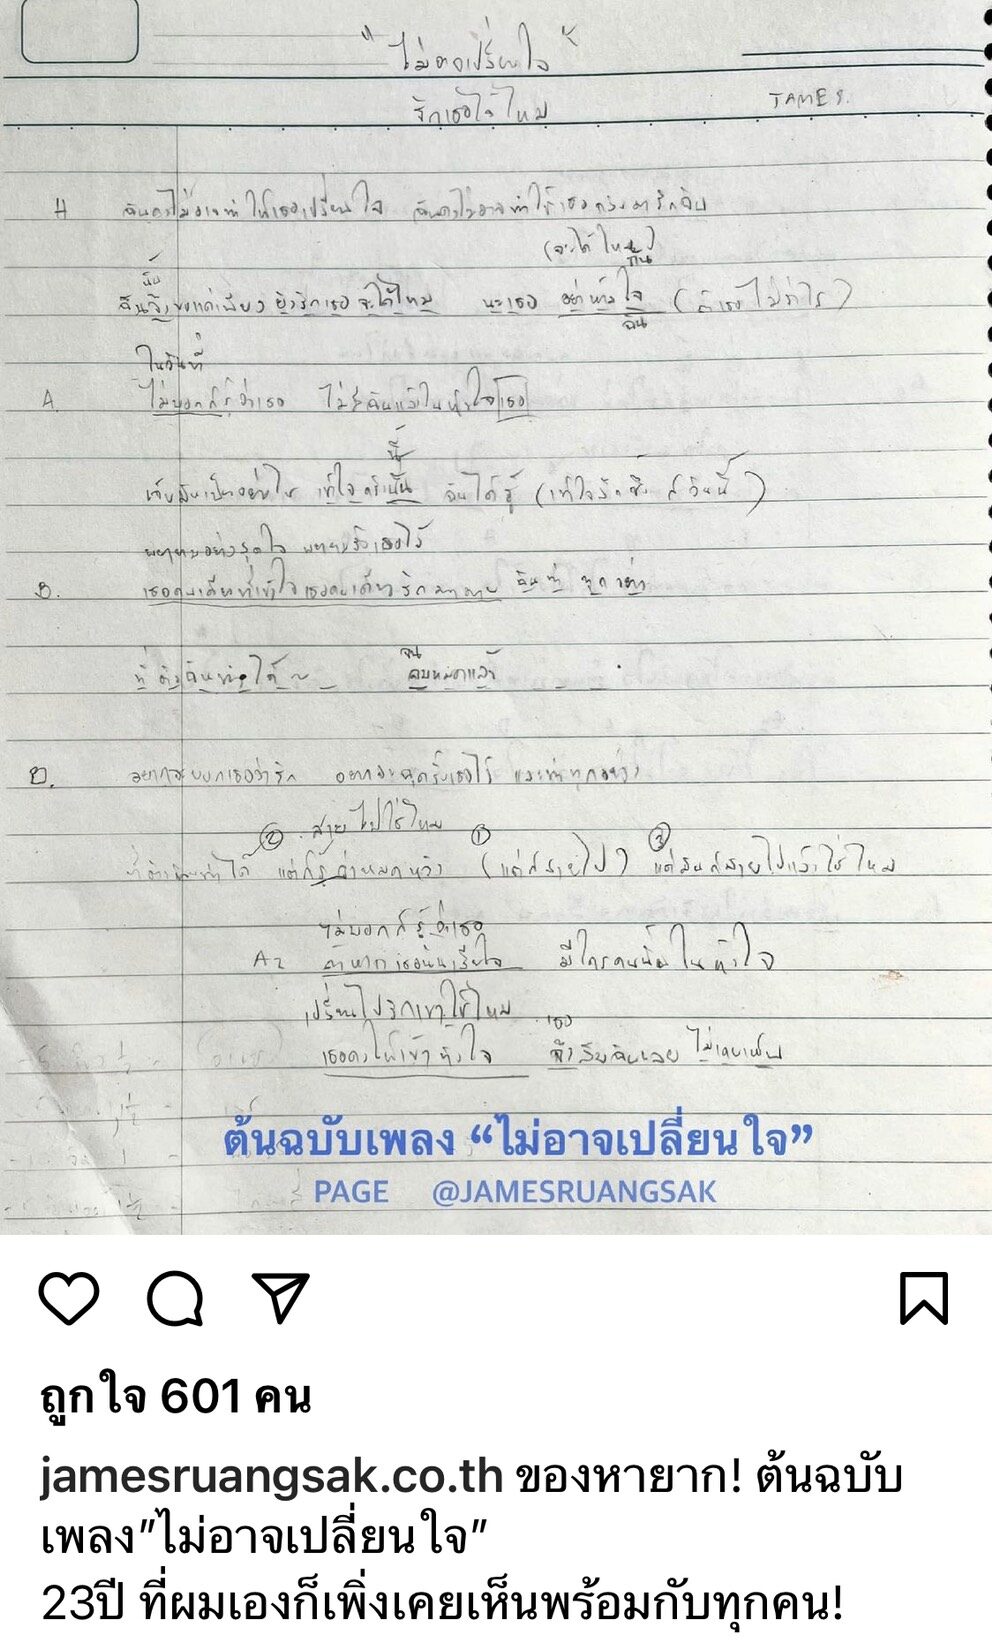 "ไม่อาจเปลี่ยนใจ"
รักเธอได้ไหม JAMES.
H ฉันคงไม่อาจทำให้เธอเปลี่ยนใจ ฉันคงไม่อาจทำให้เธอ
(จะได้ไหม)
นั้น
ฉันจึงขอแค่เพียง ยังรักเธอ จะได้ไหม นะเธอ อย่าห้ามใจ (ถ้าเธอไม่ว่าไร)
ฉัน
ในวันที่
A. ไม่บอกก็รู้ว่าเธอ ไม่มีฉันแล้วในหัวใจเธอ
นี้
เจ็บมันเป็นอย่างไร เข้าใจครั้งนั้น ฉันได้รู้ (เข้าใจลึกซึ้งก็วันนี้)
พยายามอย่างสุดใจ พยายามรั้งเธอไว้
B. เธอคนเดียวที่เข้าใจ เธอคนเดียวรักมากมาย ฉันทำทุกอย่าง
ที่ตัวฉันทำได้
จน
หมดแล้ว
B. อยากจะบอกเธอว่ารัก อยากจะฉุดรั้งเธอไว้ และทำทุกอย่าง
② สายไปใช่ไหม ① ③
ได้ แต่ก็รู้ว่าหมดหวัง (แต่ก็สายไป) แต่มันก็สายไปแล้วใช่ไหม
ไม่บอกก็รู้ว่าเธอ
A2 ถ้าหากเธอนั้นเสียใจ มีใครคนนั้นในหัวใจ
เปลี่ยนไปรักเขาใช่ไหม
เธอ
เธอคงให้เขาทั้งใจ ลืมฉันเลย ไม่เคยเห็น
ต้นฉบับเพลง “ไม่อาจเปลี่ยนใจ”
PAGE @JAMESRUANGSAK
ถูกใจ 601 คน
jamesruangsak.co.th ของหายาก! ต้นฉบับ
เพลง"ไม่อาจเปลี่ยนใจ"
23ปี ที่ผมเองก็เพิ่งเคยเห็นพร้อมกับทุกคน!